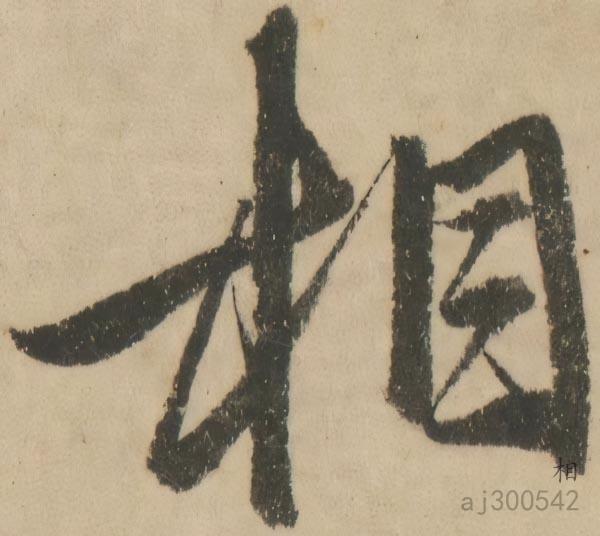 相
相
aj300542